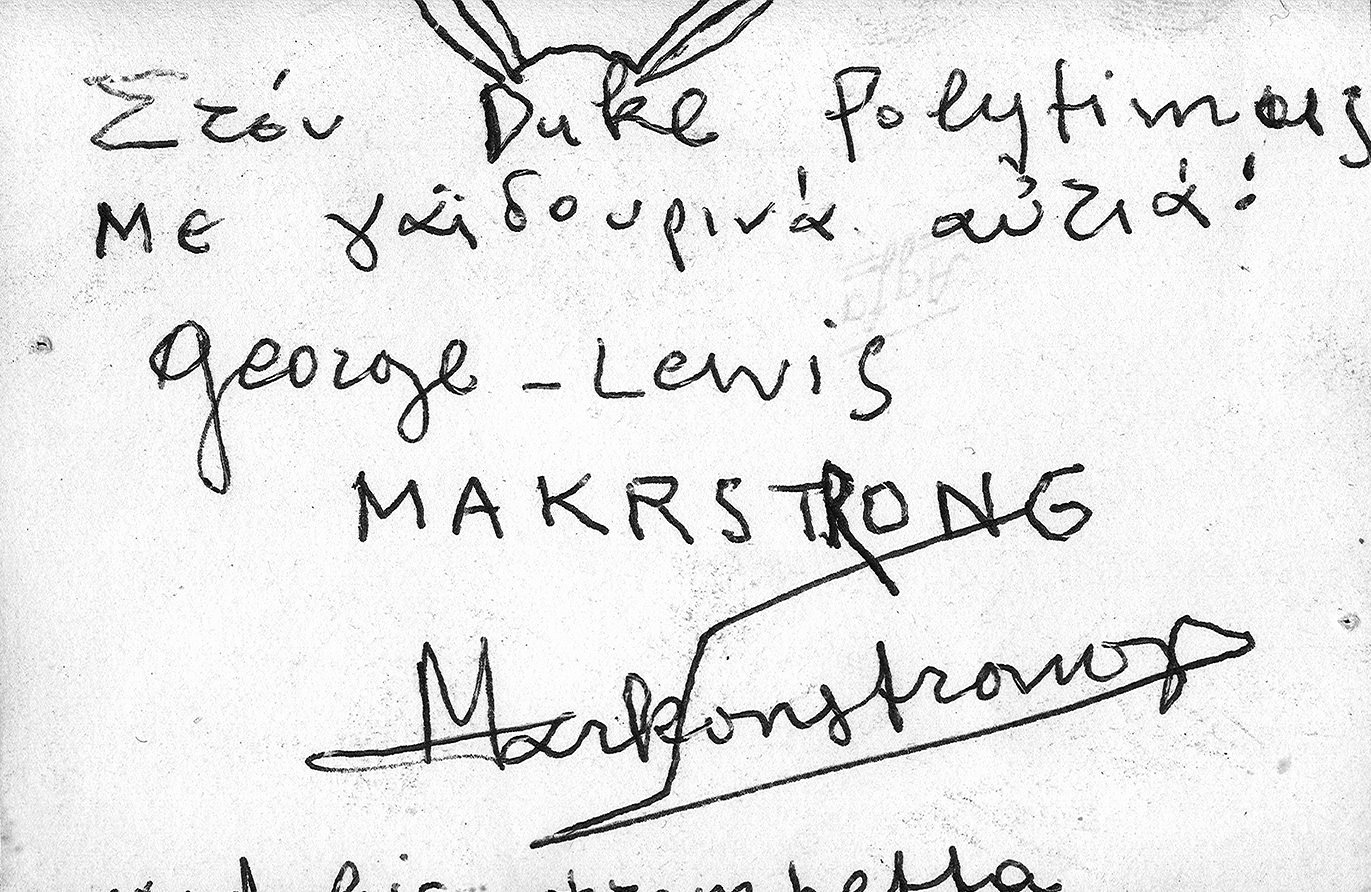 Στόν Duke Polytimois
Με γαϊδουρινά αὐτιά!
George - Lewis
MAKRSTRONG
Markonstrong